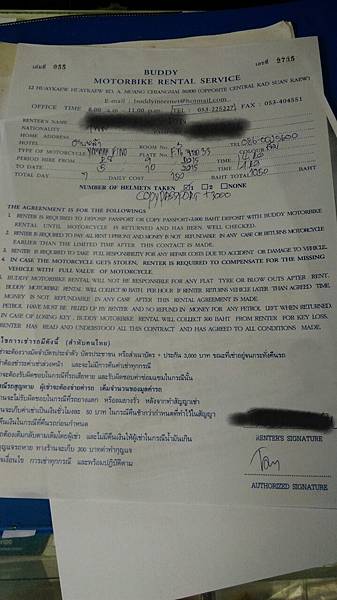 เล่มที่ 055 เลขที่ 2735
BUDDY
MOTORBIKE RENTAL SERVICE
12 HUAYKAEW HUAYKAEW RD. A. MUANG CHIANGMAI 50000 (OPPOSITE CENTRAL KAD SUAN KAEW)
E-mail : buddyinternet@hotmail.com
OFFICE TIME 8.00 a.m. - 11.00 p.m. TEL : 053-225227 FAX : 053-404551
RENTER'S NAME
NATIONALITY
HOME ADDRESS
HOTEL ROOM NO TEL
TYPE OF MOTORCYCLE YAMAHA FINO PLATE COLOUR
PERIOD HIRE FROM 28 9 2015 TIME
TO DATE 5 10 2015 TIME
TOTAL DAY 7 DAILY COST 150 BAHT TOTAL 1050 BAHT
NUMBER OF HELMETS TAKEN 1 2 NONE
COPY PASSPORT + 3000
THE AGREEMENT IS FOR THE FOLLOWINGS
1. RENTER IS REQUIRED TO DEPOSIT PASSPORT OR COPY PASSPORT+ BAHT DEPOSIT WITH BUDDY MOTORBIKE
RENTAL UNTIL MOTORCYCLE IS RETURNED AND HAS BEEN WELL CHECKED.
2. RENTER IS REQUIRED TO PAY ALL RENT UPFRONT AND MONEY IS NOT REFUNDABLE IN ANY CASE OR RETURNS MOTORCYCLE
EARLIER THAN THE LIMITED TIME AFTER THIS CONTACT IS MADE.
3. RENTER IS REQUIRED TO TAKE FULL RESPONSIBILITY FOR ANY REPAIR COSTS DUE TO ACCIDENT OR DAMAGE TO VEHICLE.
4. IN CASE THE MOTORCYCLE GETS STOLEN, RENTER IS REQUIRED TO COMPENSATE FOR THE MISSING
VEHICLE WITH FULL VALUE OF MOTORCYCLE.
BUDDY MOTORBIKE RENTAL WILL NOT BE RESPONSIBLE FOR ANY FLAT TYRE OR BLOW OUTS AFTER RENT.
BUDDY MOTORBIKE RENTAL WILL COLLECT 50 BAHT PER HOUR IF RENTER RETURNS VEHICLE LATER THAN AGREED TIME.
MONEY IS NOT REFUNDABLE IN ANY CASE AFTER THIS RENTAL AGREEMENT IS MADE.
PETROL HAVE MUST BE FILLED UP BY RENTER AND NO REFUND IN MONEY FOR ANY PETROL LEFT WHEN RETURNED.
IN CASE OF LOSING KEY, BUDDY MOTORBIKE RENTAL WILL COLLECT 300 BAHT FROM RENTER FOR KEY LOSS.
RENTER HAS READ AND UNDERSTOOD ALL THIS CONTRACT AND HAS AGREED TO ALL CONDITIONS MADE.
ไขการเช่ามีดังนี้ (สำหรับคนไทย)
ช่าจะต้องวางมัดจำบัตรประจำตัว บัตรประชาชน หรือสำเนาบัตร + ประกัน 3,000 บาท จนกระทั่งคืนรถ
ต้องชำระค่าเช่าล่วงหน้า และจะไม่มีการคืนเงินในทุกกรณี
ช่าจะต้องรับผิดชอบในกรณีรถเสียหาย และรับผิดชอบค่าซ่อมแซมในกรณีนั้น
กรณีรถสูญหาย ผู้เช่าจะต้องจ่ายค่ารถ เต็มจำนวนของมูลค่ารถ
านจะไม่รับผิดชอบในกรณีที่รถยางแตก หรือลมยางรั่ว หลังจากทำสัญญาเช่า
านจะเก็บค่าเช่าเป็นเงินชั่วโมงละ 50 บาท ในกรณีคืนช้ากว่ากำหนดที่ทำไว้ในสัญญา
คืนเงินในกรณีที่คืนรถก่อนกำหนด
ถต้องเติมกลับตามเดิมโดยผู้เช่า และไม่มีคืนเงินให้ผู้เช่าในกรณีน้ำมันเกิน
กุญแจรถหาย ทางร้านจะเก็บ 300 บาทค่าทำกุญแจ
เงื่อนไข การเช่าทุกกรณี และพร้อมปฏิบัติตาม
RENTER'S SIGNATURE
AUTHORIZED SIGNATURE